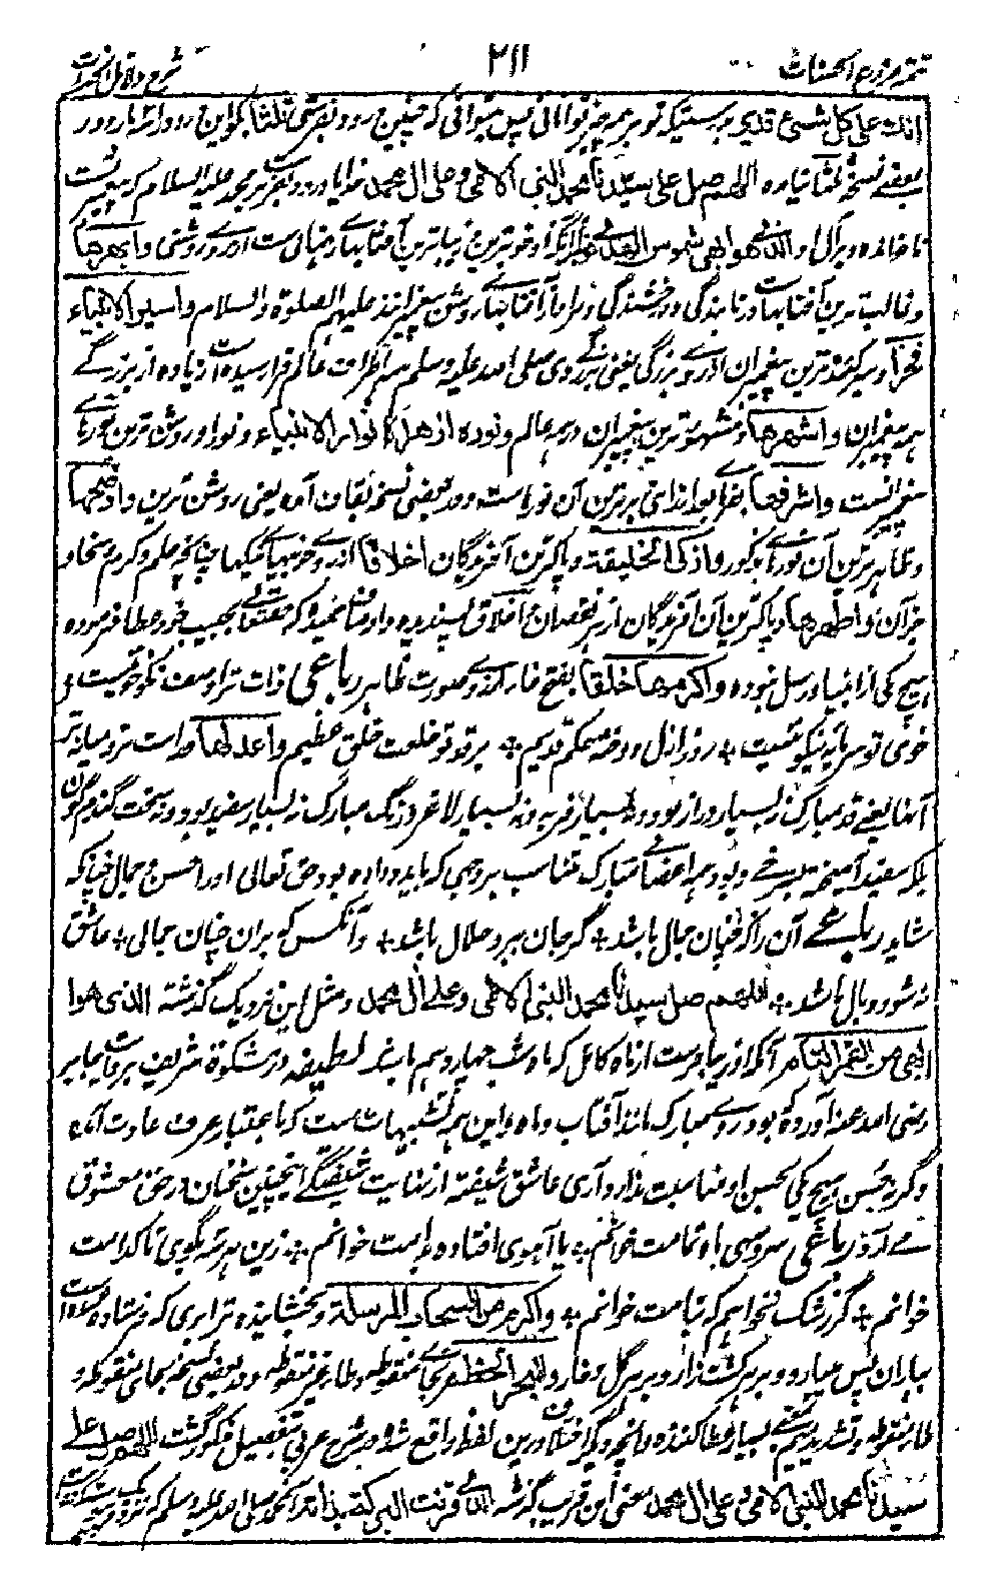 تتمہ مزرع الحسنات ۲۱۱ شرح دلائل الخیرات
انک علی کل شیئ قدیر بدرستیکہ تو بر ہمہ چیز توانائی پس میتوانی کہ چنین درود بفرستی ثلثا بگو این درود را سہ بار و در
بعضے نسخہ ثلثا نیامدہ اللهم صل علی سیدنا محمد النبی الامی وعلی ال محمد خدایا درود بفرست بر محمد علیہ السلام کہ پیغمبریست
ناخواندہ و بر آل او الذی هو ابهی شموس الهدی نورا آنکہ او خوبترین و زیباترین آفتابہاے رہنمائی ست از روے روشنی وابهرها
و غالب ترین آفتابہاست در تابندگی و درخشندگی و مراد از آفتابہاے روشن پیغمبرانند علیہم الصلوۃ والسلام واسیر الانبیاء
فخرا و سیر کنندہ ترین پیغمبران از روے بزرگی یعنی بزرگی وی صلی اللہ علیہ وسلم بہمہ اطراف عالم فرا رسیدہ است زیادہ از بزرگے
ہمہ پیغمبران واشهرها و مشہورترین پیغمبران در ہمہ عالم و نورہ ازهر الانوار الانبیاء و نور او روشن ترین نورہاے
پیغمبرانست واشرفها بفا بواند اینی برترین آن نورہاست و در بعضی نسخہ بقاف آمدہ یعنی روشن ترین واوضحها
و ظاہرترین آن نورہاے مذکور وازکی الخلیقة و پاکترین آفریدگان اخلاقا از روے خوبیہا نیکیہا چنانچہ حلم و کرم و سخا و
جز آن واطهرها و پاکترین آن آفریدگان از ہر نقصان اخلاق پسندیدہ و اوصاف حمیدہ کہ حقتعالے بحبیب خود عطا فرمودہ
ہیچ یکی از انبیا و رسل نبودہ واکرمها خلقا بفتح خا از روے صورت ظاہر رباعی ذات تو ز وصف نکو خوئیست و
خوی تو سرمایہ نیکوئیست ٭ روز ازل دوختہ حکم قدیم ٭ بر قد تو خلعت خلق عظیم واعدلها و راست تر و میانہ تر
آنہا یعنے قد مبارک نہ بسیار دراز بود و نہ بسیار فربہ و نہ بسیار لاغر و رنگ مبارک نہ بسیار سفید بود و نہ سخت گندم گون
بلکہ سفید آمیختہ بسرخے و بود ہمہ اعضاے مبارک متناسب بروجہی کہ باید و دادہ بود حق تعالی او را حسن و جمال چنانکہ
شاید رباعے آن را کہ چنان جمال باشد ٭ گر جان ببرد حلال باشد ٭ و آنکس کہ بران چنان جمالی ٭ عاشق
نشود وبال باشد ٭ اللهم صل سیدنا محمد النبی الامی وعلے ال محمد و مثل این نزدیک گذشتہ الذی هوا
ابهی من القمر التام آنکہ او زیباتر ست از ماہ کامل کہ ماہ شب چہاردہم باشد لطیفہ در مشکوۃ شریف بروایت جابر
رضی اللہ عنہ آوردہ کہ بود روے مبارک مانند آفتاب و ماہ و این ہمہ تشبیہات ست کہ باعتبار عرف و عادت آمدہ
و گرنہ حُسن ہیچ یکی بحسن او مناسبت ندارد و آری عاشق شیفتہ از غایت شیفتگے اینچنین سخنان در حق معشوق
مے آرد رباعی سرو سہی با قامت خوانم ٭ یا آہوی افتادہ بدامت خوانم ٭ زین ہر سہ بگوی تا کدامت
خوانم ٭ کز رشک نخواہم کہ بنامت خوانم ٭ واکرم من السحاب المرسلة و بخشایندہ تر از ابری کہ فرستادہ شدہ است
بباران پس میبارد و بر ہر کشت زار و بر ہر گل و خار والبحر الخطم بخاے منقوطہ و طاے غیر منقوطہ و در بعضی نسخہ بحای منقوطہ و
ظاے منقوطہ و تشدید میم یعنے بسیار عطا کنندہ و آنچہ دیگر اختلاف درین لفظ واقع شدہ در شرح عربی بتفصیل مذکور گشت اللهم صل علے
سیدنا محمد النبی الامی وعلی ال محمد معنی این قریب گذشتہ الذی قرنت البرکة بذاته آن محمد صلی اللہ علیہ وسلم کہ